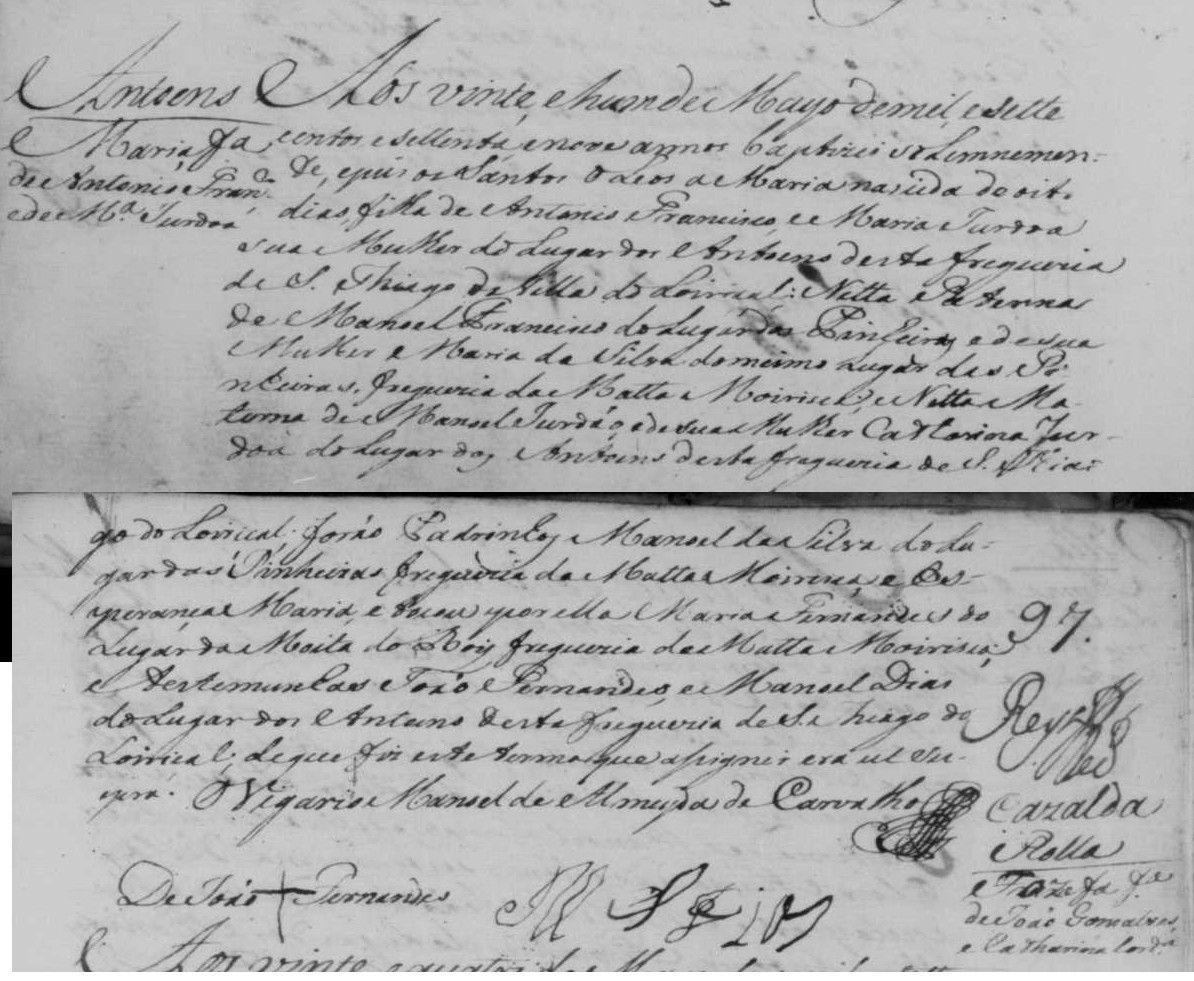 Antoens
Maria fa
de Antonio Fran.co
e de M.a Jurdoa
Aos vinte, e hum de Mayo de mil, e sette
centos e settenta e nove annos baptizei solemnemen-
te, e pus os Santos Oleos a Maria nascida de oito
dias, filha de Antonio Francisco, e Maria Jurdoa
sua Mulher do Lugar dos Antoens desta freguezia
de S. Thiago da Villa do Loirical: Netta Paterna
de Manoel Francisco do Lugar das Pinheiras, e de sua
Mulher Maria da Silva do mesmo Lugar das Pi-
nheiras, freguezia da Matta Moirisca, e Netta Ma-
terna de Manoel Jurdão, e de sua Mulher Catharina Jur-
doa do Lugar dos Antoens desta freguezia de S. Thia-
go do Loirical: forão Padrinhos Manoel da Silva do Lu-
gar das Pinheiras freguezia da Matta Moirisca, e Es-
perança Maria, e tocou por ella Maria Fernandes do
Lugar da Moita do Boy freguezia da Matta Moirisca,
e testemunhas João Fernandes, e Manoel Dias
do Lugar dos Antoens desta freguezia de S. Thiago do
Loirical; de que fiz este termo que assignei era ut su-
pra. O Vigario Manoel de Almeyda de Carvalho
De João + Fernandes
97.
Cazal da
Rolla
Jozefa f.a
de João Gonsalves,
e Catharina
Aos vinte, e quatro de Mayo de mil e sette